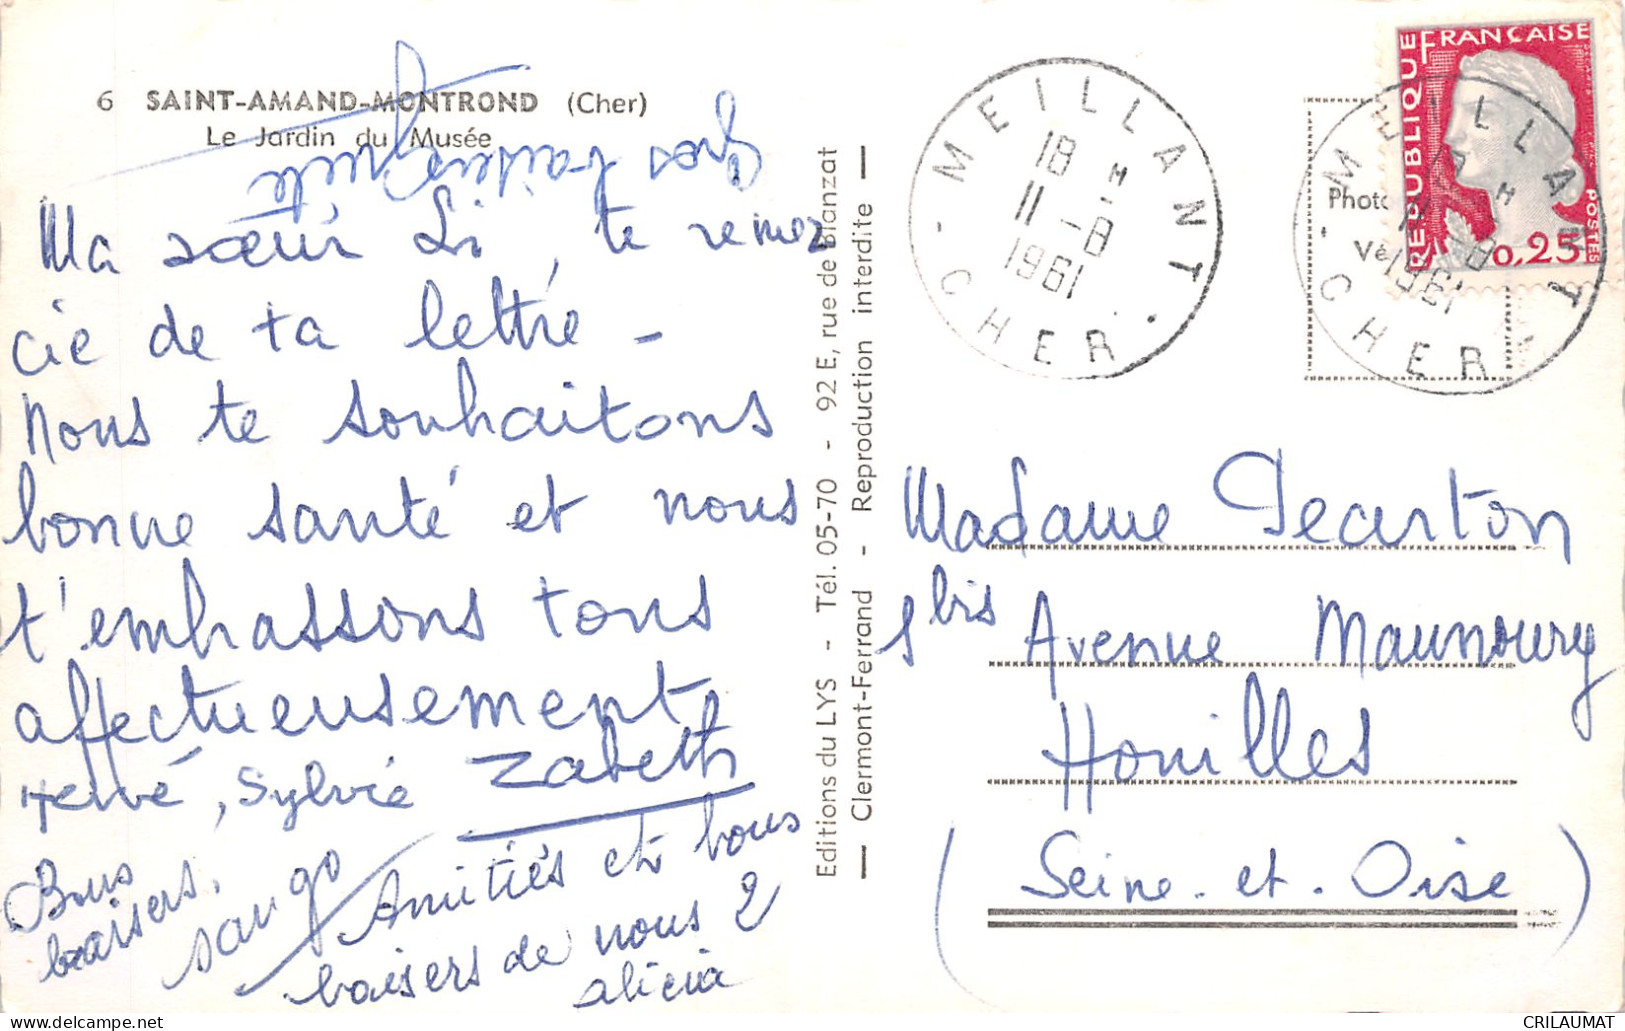 6 SAINT-AMAND-MONTROND (Cher)
Le Jardin du Musée
Gros baisers
Ma sœur Li, te remer
cie de ta lettre -
Nous te souhaitons
bonne santé et nous
t'embrassons tous
affectueusement
Hervé, Sylvie Zabeth
Bons
baisers,
Amitiés et bons
baisers de nous 2
alicia
Editions du LYS - Tél. 05-70 - 92 E, rue de Blanzat
— Clermont-Ferrand - Reproduction interdite —
MEILLANT
18 H
11 -8
1961
- CHER -
REPUBLIQUE FRANÇAISE
POSTES
0,25
Photo
Vé
MEILLANT
18 H
11 -8
1961
- CHER -
Madame Pearton
1 bis Avenue Maunoury
Houilles
(Seine-et-Oise)
CRILAUMAT